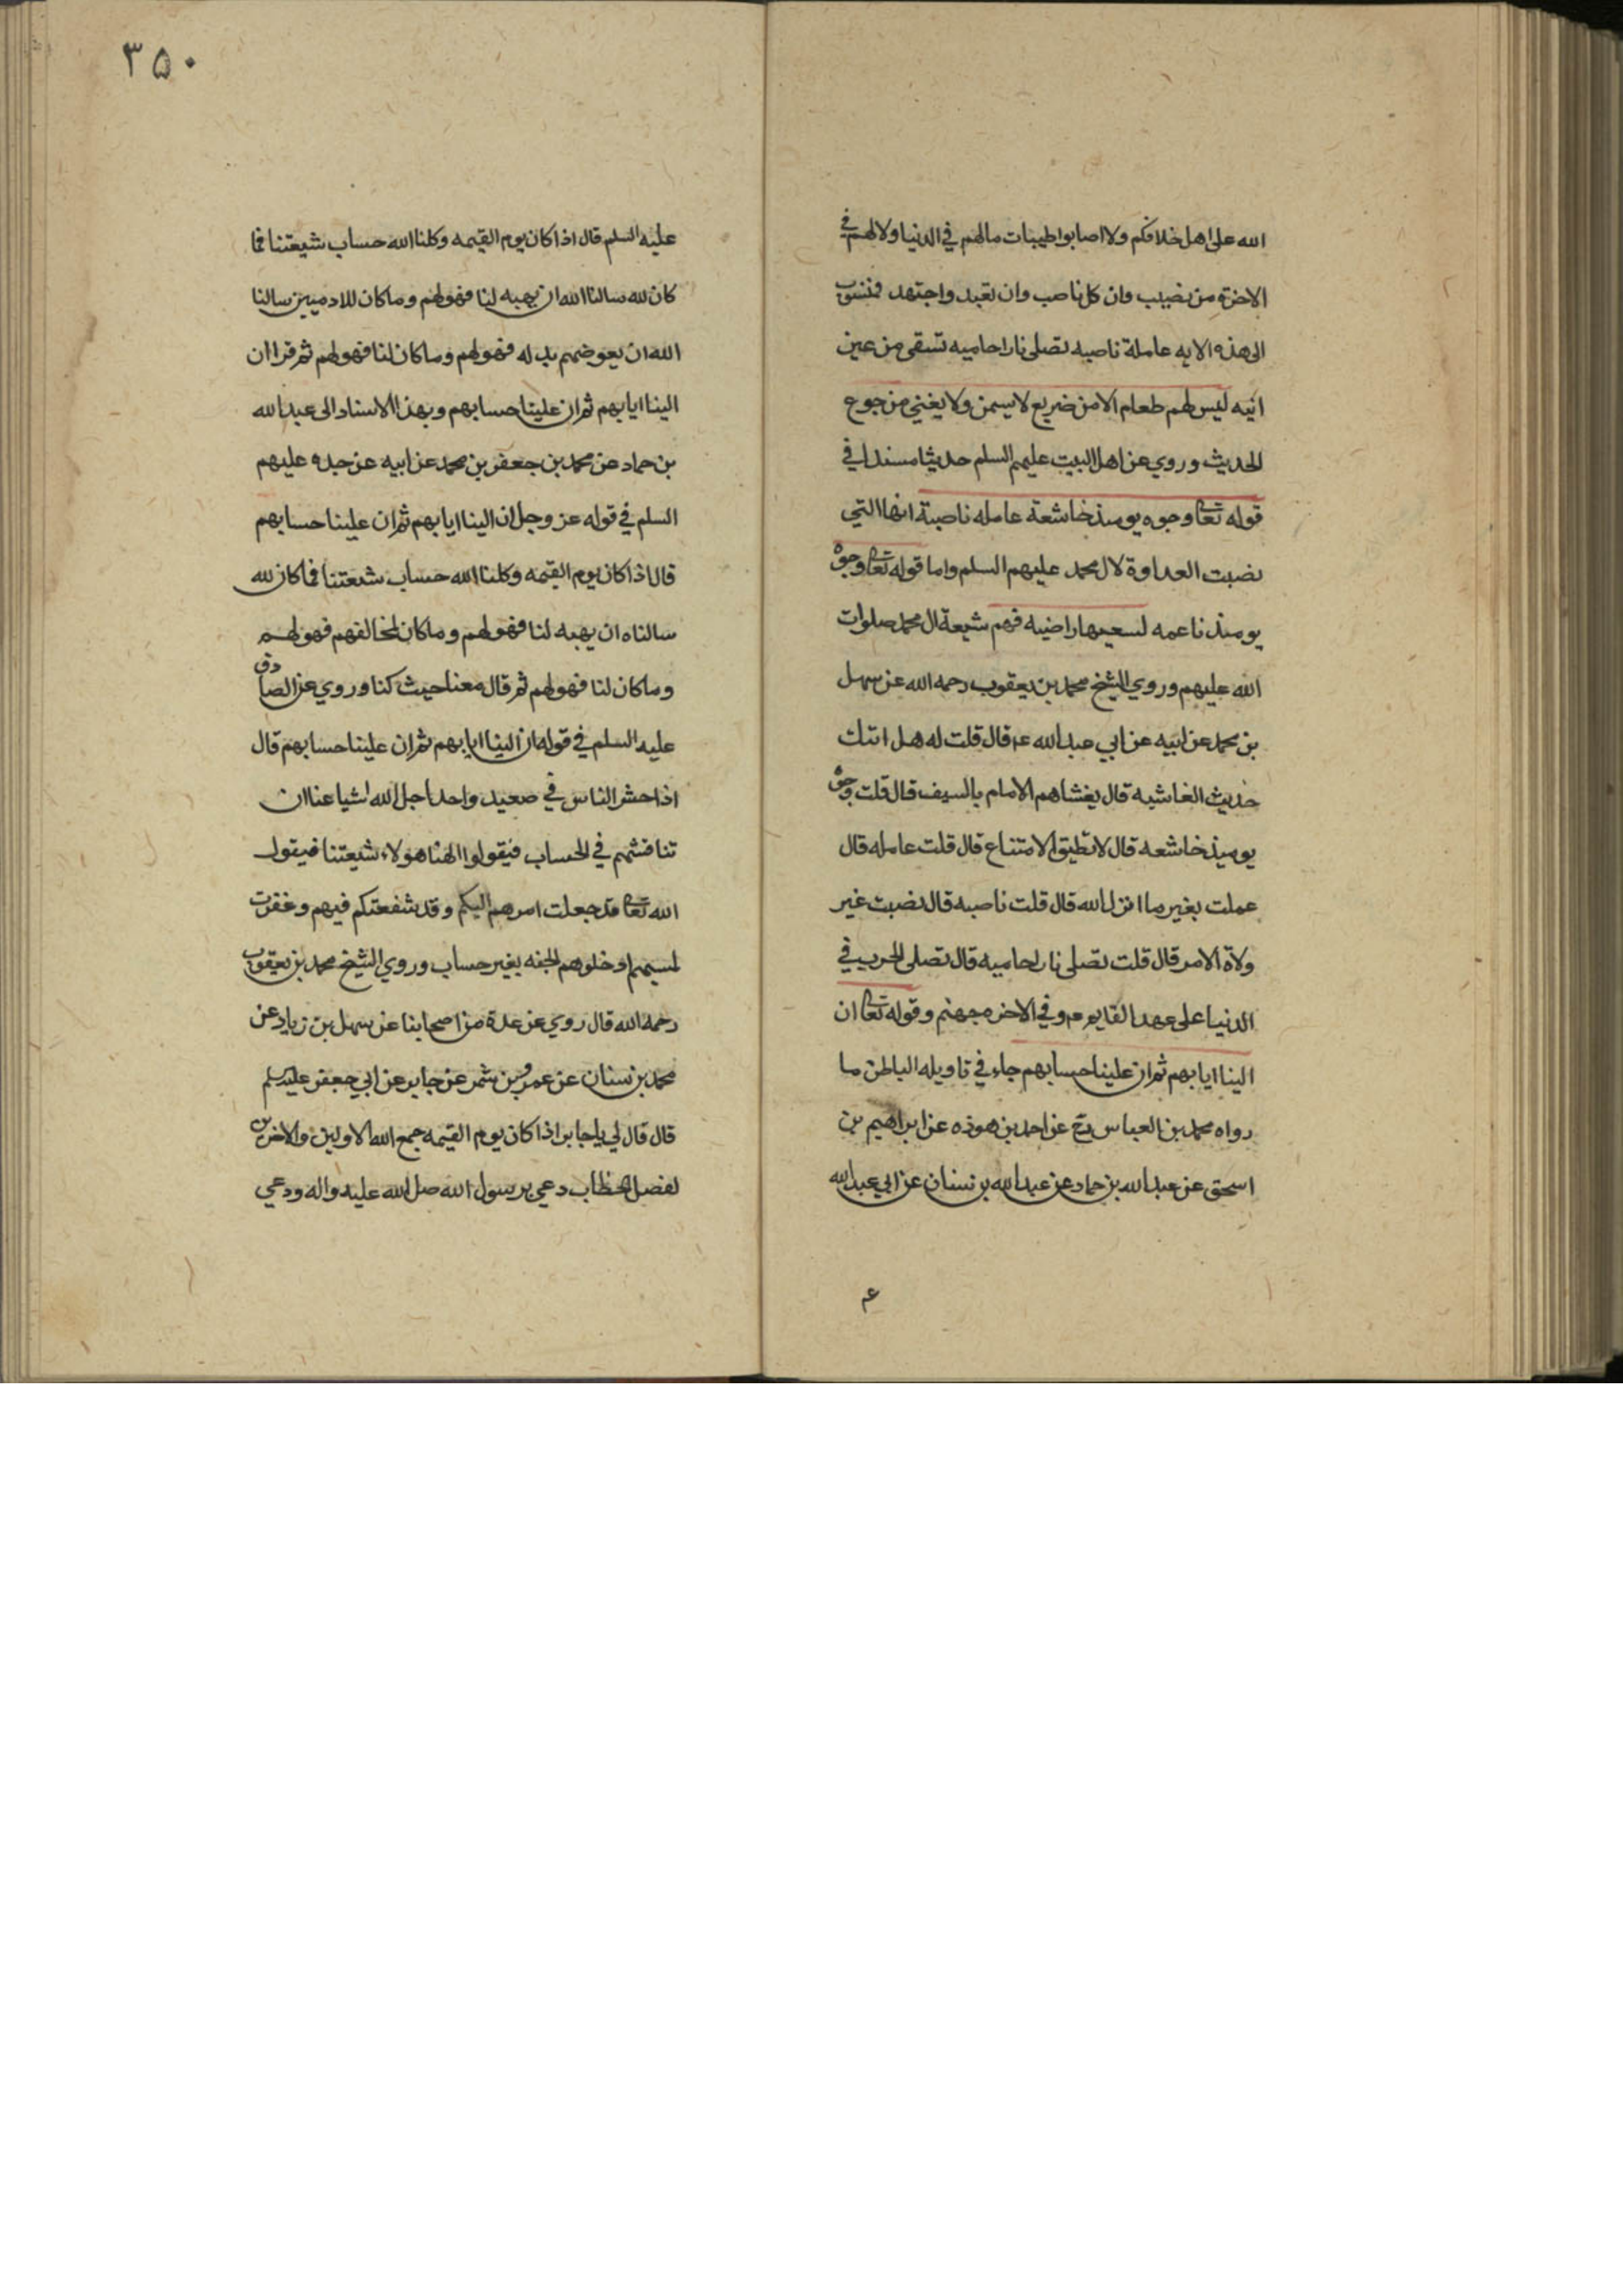 الله على اهل خلافكم ولا اصابوا طيبات مالهم في الدنيا ولا لهم في
الاخرة من نصيب وان كل ناصب وان تعبد واجتهد فمنسوب
الى هذه الايه عاملة ناصبه تصلى نارا حاميه تسقى من عين
انيه ليس لهم طعام الا من ضريع لا يسمن ولا يغني من جوع
الحديث وروي عن اهل البيت عليهم السلم حديثا مسندا في
قوله تعا وجوه يومئذ خاشعة عامله ناصبة انها التي
نصبت العداوة لال محمد عليهم السلم واما قوله تعا وجوه
يومئذ ناعمه لسعيها راضيه فهم شيعة ال محمد صلوات
الله عليهم وروي الشيخ محمد بن يعقوب رحمه الله عن سهل
بن محمد عن ابيه عن ابي عبد الله ع قال قلت له هل اتتك
حديث الغاشيه قال يغشاهم الامام بالسيف قال قلت وجوه
يوميذ خاشعه قال لا تطيق الامتناع قال قلت عامله قال
عملت بغير ما انزل الله قال قلت ناصبه قال نصبت غير
ولاة الامر قال قلت تصلى نارا حاميه قال تصلى الحرب في
الدنيا على عهد القايم وفي الاخره جهنم وقوله تعا ان
الينا ايابهم ثم ان علينا حسابهم جاء في تاويله الباطن ما
رواه محمد بن العباس رح عن احمد بن هوذه عن ابراهيم بن
اسحق عن عبد الله بن حماد عن عبد الله بن سنان عن ابي عبد الله
ع
٣٥٠
عليه السلم قال اذا كان يوم القيمه وكلنا الله حساب شيعتنا فما
كان لله سالنا الله ان يهبه لنا فهو لهم وما كان للادميين سالنا
الله ان يعوضهم بدله فهو لهم وما كان لنا فهو لهم ثم قرا ان
الينا ايابهم ثم ان علينا حسابهم وبهذا الاسناد الى عبد الله
بن حماد عن محمد بن جعفر بن محمد عن ابيه عن جده عليهم
السلم في قوله عز وجل ان الينا ايابهم ثم ان علينا حسابهم
قال اذا كان يوم القيمه وكلنا الله حساب شيعتنا فما كان لله
سالناه ان يهبه لنا فهو لهم وما كان لمخالفهم فهو لهم
وما كان لنا فهو لهم ثم قال معنا حيث كنا وروي عن الصادق
عليه السلم في قوله ان الينا ايابهم ثم ان علينا حسابهم قال
اذا حشر الناس في صعيد واحد اجل الله اشياعنا ان
تناقشهم في الحساب فيقولوا الهنا هولاء شيعتنا فيقول
الله تعا قد جعلت امرهم اليكم وقد شفعتكم فيهم وغفرت
لمسيهم ادخلوهم الجنه بغير حساب وروي الشيخ محمد بن يعقوب
رحمه الله قال روي عن عدة من اصحابنا عن سهل بن زياد عن
محمد بن سنان عن عمرو بن شمر عن جابر عن ابي جعفر عليه سلم
قال قال لي يا جابر اذا كان يوم القيمه جمع الله الاولين والاخرين
لفصل الخطاب دعي برسول الله صل الله عليه واله ودعي